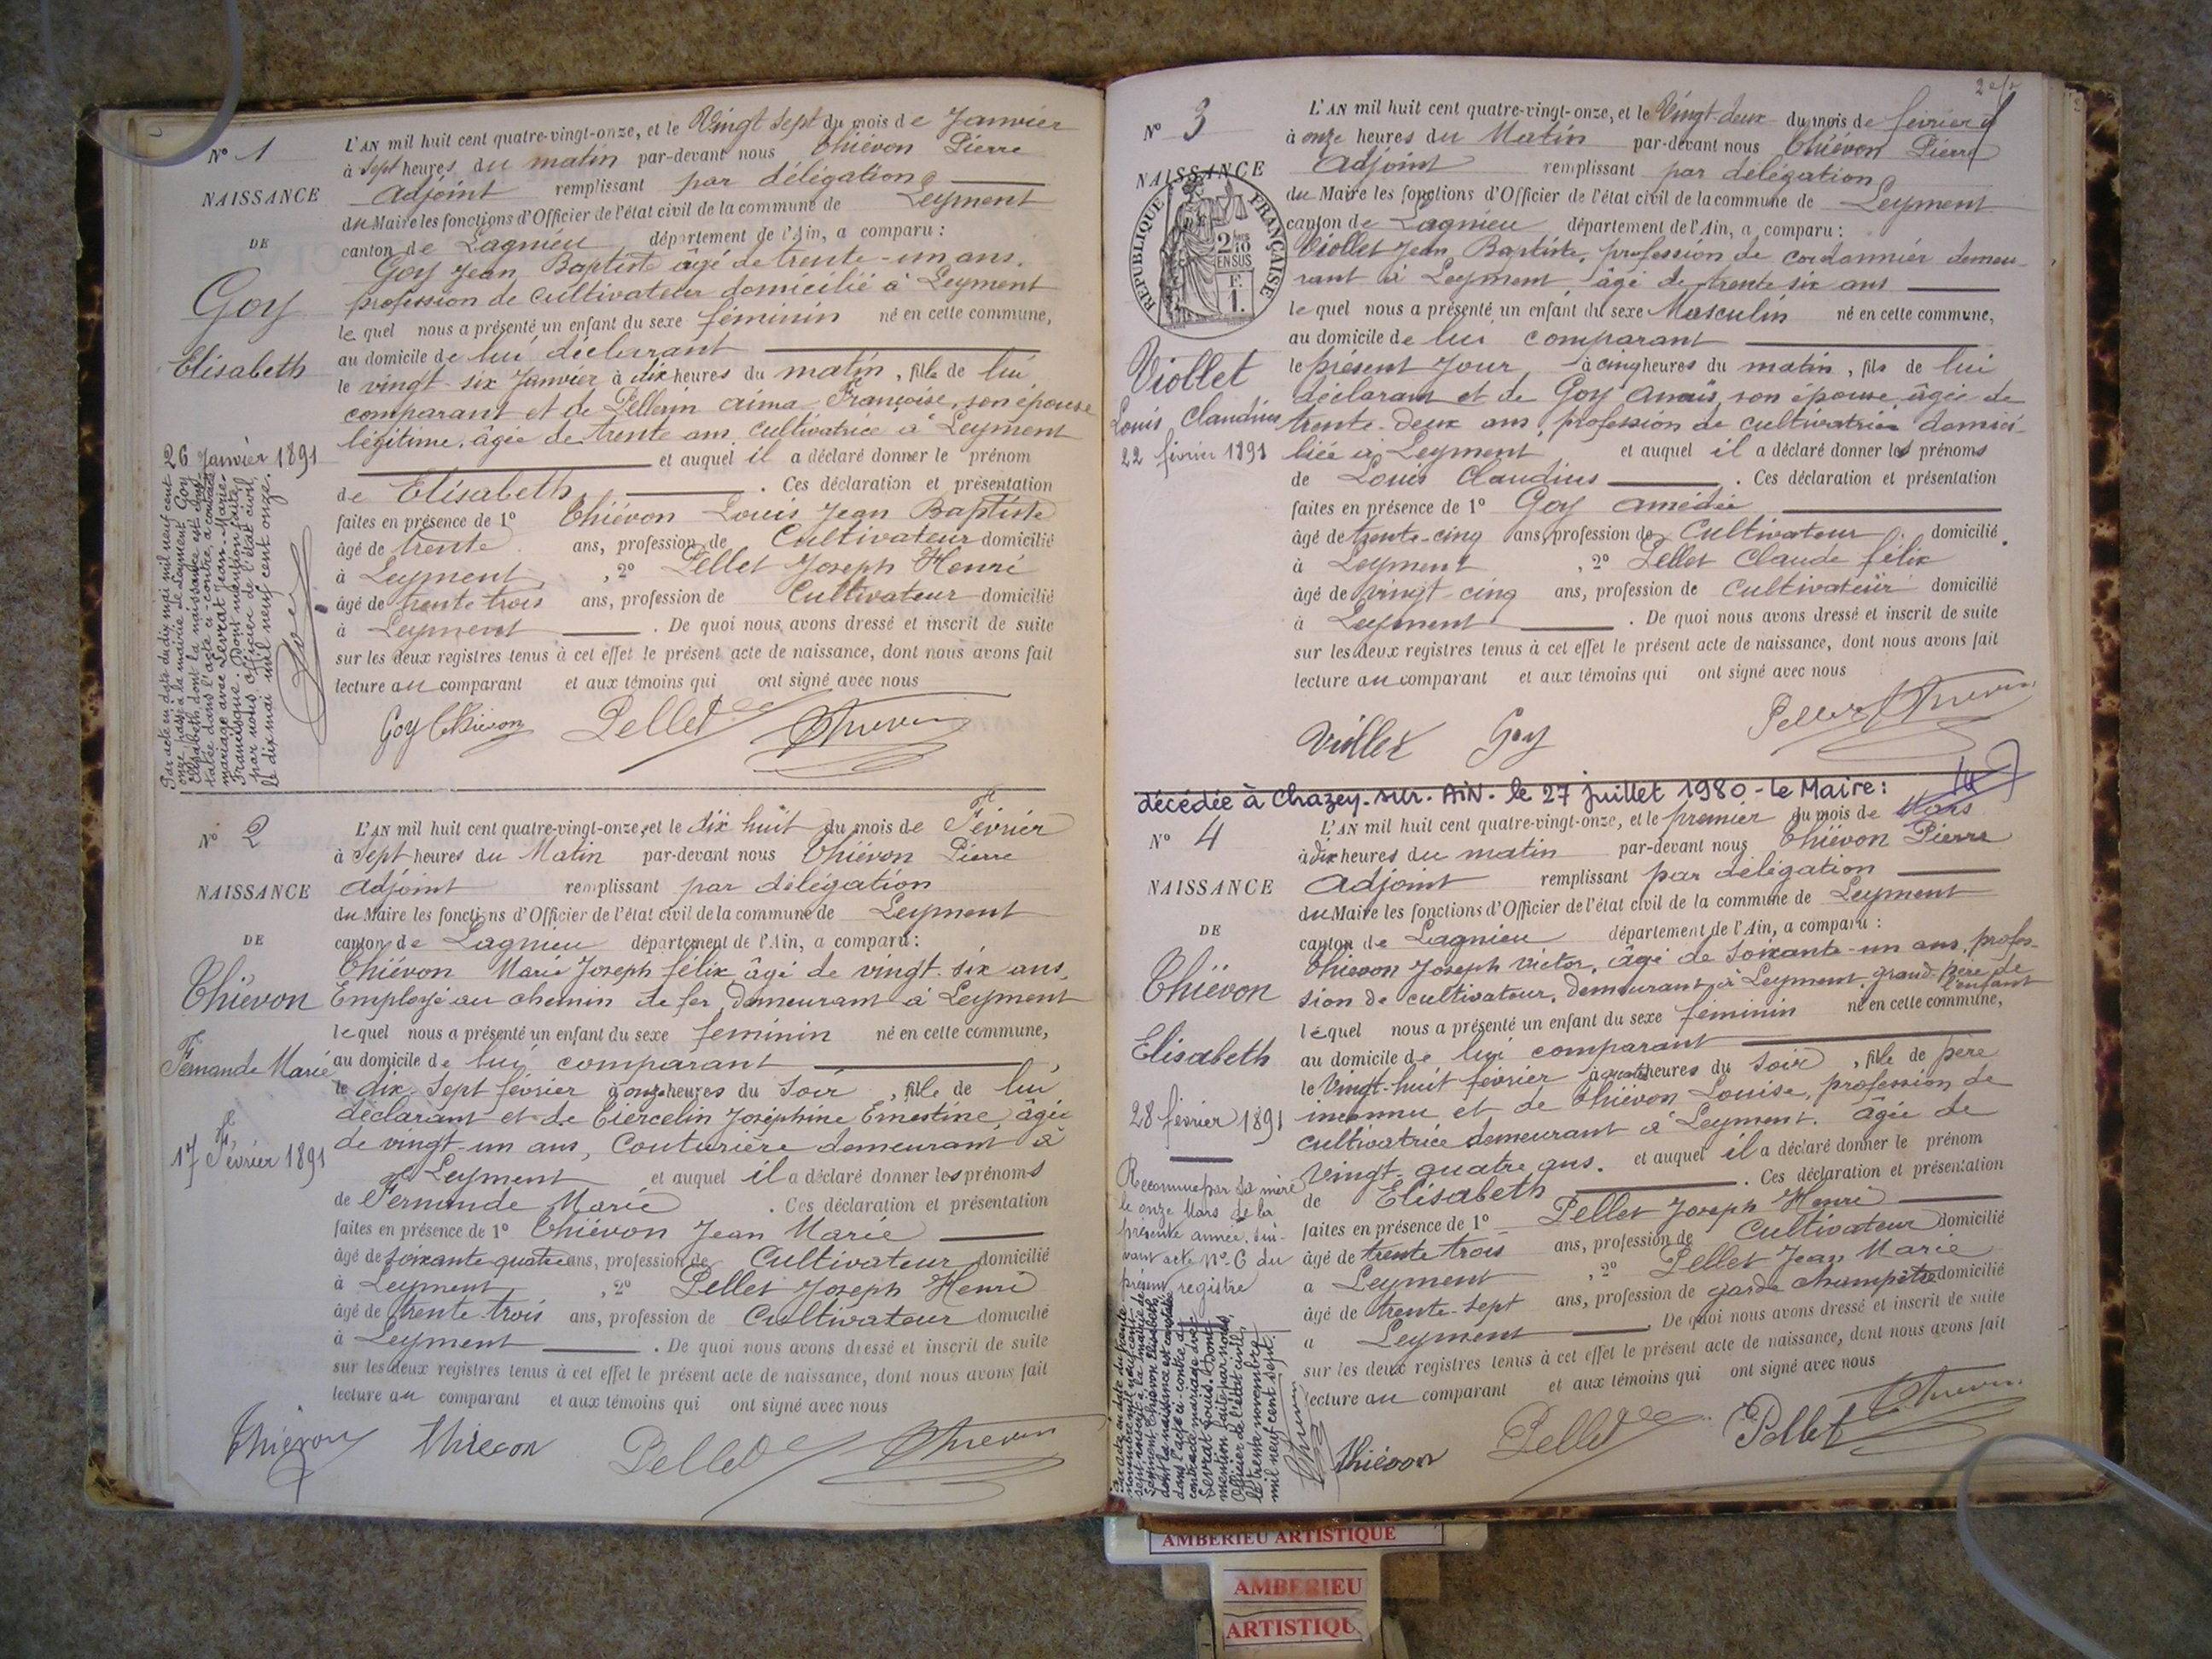 N° 1
NAISSANCE
DE
Goy
Elisabeth
26 Janvier 1891
Par acte en date du dix mai mil neuf cent
onze passé à la mairie de Leyment Goy
Elisabeth dont la naissance est cons-
tatée dans l'acte ci-contre, a contracté
mariage avec Levrat Jean-Marie-
Francisque. Dont mention faite
par nous officier de l'état civil,
le dix mai mil neuf cent onze.
L'AN mil huit cent quatre-vingt-onze, et le Vingt sept du mois de Janvier
à sept heures du matin par-devant nous Thiévon Pierre
adjoint remplissant par délégation
du Maire les fonctions d'Officier de l'état civil de la commune de Leyment
canton de Lagnieu département de l'Ain, a comparu :
Goy Jean Baptiste âgé de trente-un ans.
profession de cultivateur domicilié à Leyment
le quel nous a présenté un enfant du sexe féminin né en cette commune,
au domicile de lui déclarant
le vingt-six Janvier à dix heures du matin, fille de lui
comparant et de Pellerin Aima Françoise, son épouse
légitime, âgée de trente ans, cultivatrice à Leyment
et auquel il a déclaré donner le prénom
de Elisabeth. Ces déclaration et présentation
faites en présence de 1° Thiévon Louis Jean Baptiste
âgé de trente ans, profession de Cultivateur domicilié
à Leyment, 2° Pellet Joseph Henri
âgé de trente trois ans, profession de Cultivateur domicilié
à Leyment. De quoi nous avons dressé et inscrit de suite
sur les deux registres tenus à cet effet le présent acte de naissance, dont nous avons fait
lecture au comparant et aux témoins qui ont signé avec nous
Goy Thiévon Pellet Thievon
N° 2
NAISSANCE
DE
Thiévon
Fernande Marie
17 Février 1891
L'AN mil huit cent quatre-vingt-onze, et le dix huit du mois de Février
à Sept heures du Matin par-devant nous Thiévon Pierre
adjoint remplissant par délégation
du Maire les fonctions d'Officier de l'état civil de la commune de Leyment
canton de Lagnieu département de l'Ain, a comparu :
Thiévon Marie Joseph félix âgé de vingt-six ans,
Employé au chemin de fer, demeurant à Leyment
lequel nous a présenté un enfant du sexe feminin né en cette commune,
au domicile de lui comparant
le dix-sept février à onze heures du soir, fille de lui
déclarant et de Tiercelin Joséphine Ernestine, âgée
de vingt-un ans, Couturière demeurant à
Leyment et auquel il a déclaré donner les prénoms
de Fernande Marie. Ces déclaration et présentation
faites en présence de 1° Thiévon Jean Marie
âgé de soixante quatre ans, profession de Cultivateur domicilié
à Leyment, 2° Pellet Joseph Henri
âgé de trente-trois ans, profession de Cultivateur domicilié
à Leyment. De quoi nous avons dressé et inscrit de suite
sur les deux registres tenus à cet effet le présent acte de naissance, dont nous avons fait
lecture au comparant et aux témoins qui ont signé avec nous
Thiévon Thievon Pellet Thievon
N° 3
NAISSANCE
REPUBLIQUE FRANÇAISE
2/10 EN SUS
F. 1.
Viollet
Louis Claudius
22 février 1891
L'AN mil huit cent quatre-vingt-onze, et le Vingt-deux du mois de février
à onze heures du Matin par-devant nous Thiévon Pierre
adjoint remplissant par délégation
du Maire les fonctions d'Officier de l'état civil de la commune de Leyment
canton de Lagnieu département de l'Ain, a comparu :
Viollet Jean Baptiste, profession de cordonnier demeu-
rant à Leyment, âgé de trente six ans
le quel nous a présenté un enfant du sexe Masculin né en cette commune,
au domicile de lui comparant
le présent Jour à cinq heures du matin, fils de lui
déclarant et de Goy Anaïs, son épouse âgée de
trente-deux ans, profession de cultivatrice domici-
liée à Leyment et auquel il a déclaré donner les prénoms
de Louis Claudius. Ces déclaration et présentation
faites en présence de 1° Goy Amédée
âgé de trente-cinq ans, profession de Cultivateur domicilié
à Leyment, 2° Pellet Claude félix
âgé de vingt-cinq ans, profession de cultivateur domicilié
à Leyment. De quoi nous avons dressé et inscrit de suite
sur les deux registres tenus à cet effet le présent acte de naissance, dont nous avons fait
lecture au comparant et aux témoins qui ont signé avec nous
Viollet Goy Pellet Thievon
décédée à Chazey-sur-Ain- le 27 juillet 1980 - Le Maire :
N° 4
NAISSANCE
DE
Thiévon
Elisabeth
28 février 1891
Reconnue par sa mère
le onze Mars de la
présente année, sui-
vant acte N° 6 du
présent registre
Par acte en date du trente
novembre mil neuf cent
sept consenti à la mairie de
Leyment Thiévon Elisabeth
dont la naissance est constatée
dans l'acte ci-contre, a
contracté mariage avec
Levrat Louis. Dont
mention faite par nous,
Officier de l'état civil,
le trente novembre
mil neuf cent sept.
L'AN mil huit cent quatre-vingt-onze, et le premier du mois de Mars
à dix heures du matin par-devant nous Thiévon Pierre
Adjoint remplissant par délégation
du Maire les fonctions d'Officier de l'état civil de la commune de Leyment
canton de Lagnieu département de l'Ain, a comparu :
Thievon Joseph Victor, âgé de soixante-un ans, profes-
sion de cultivateur, demeurant à Leyment, grand-père de l'enfant
lequel nous a présenté un enfant du sexe féminin né en cette commune,
au domicile de lui comparant
le Vingt-huit février à heures du soir, fille de père
inconnu et de Thiévon Louise, profession de
cultivatrice demeurant à Leyment. âgée de
Vingt-quatre ans. et auquel il a déclaré donner le prénom
de Elisabeth. Ces déclaration et présentation
faites en présence de 1° Pellet Joseph Henri
âgé de trente trois ans, profession de Cultivateur domicilié
à Leyment, 2° Pellet Jean Marie
âgé de trente-sept ans, profession de garde champêtre domicilié
à Leyment. De quoi nous avons dressé et inscrit de suite
sur les deux registres tenus à cet effet le présent acte de naissance, dont nous avons fait
lecture au comparant et aux témoins qui ont signé avec nous
Thiévon Pellet Pellet Thievon
AMBERIEU ARTISTIQUE
AMBERIEU
ARTISTIQU